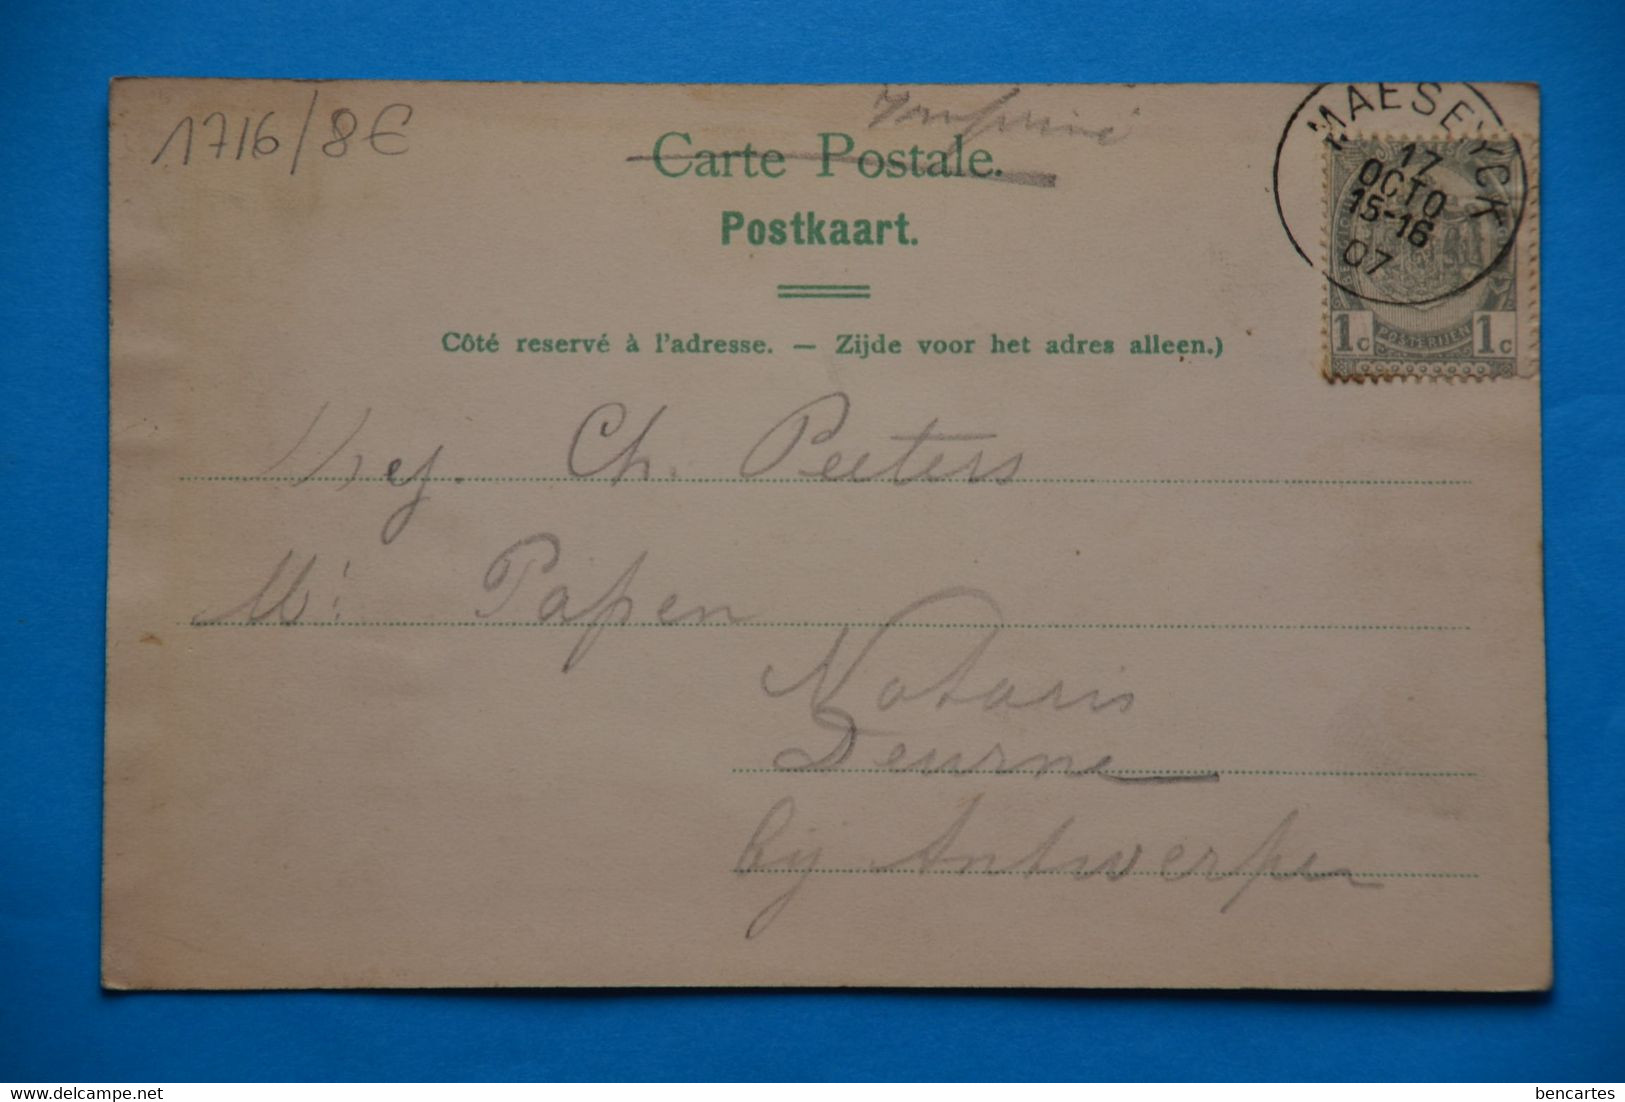 1716/8€
Imprimé
Carte Postale.
Postkaart.
MAESEYCK
17
OCTO
15-16
07
1c POSTERIJEN 1c
Côté reservé à l'adresse. — Zijde voor het adres alleen.)
Mej. Ch. Peeters
Mr Papen
Notaris
Deurne
bij Antwerpen
www.delcampe.net
bencartes